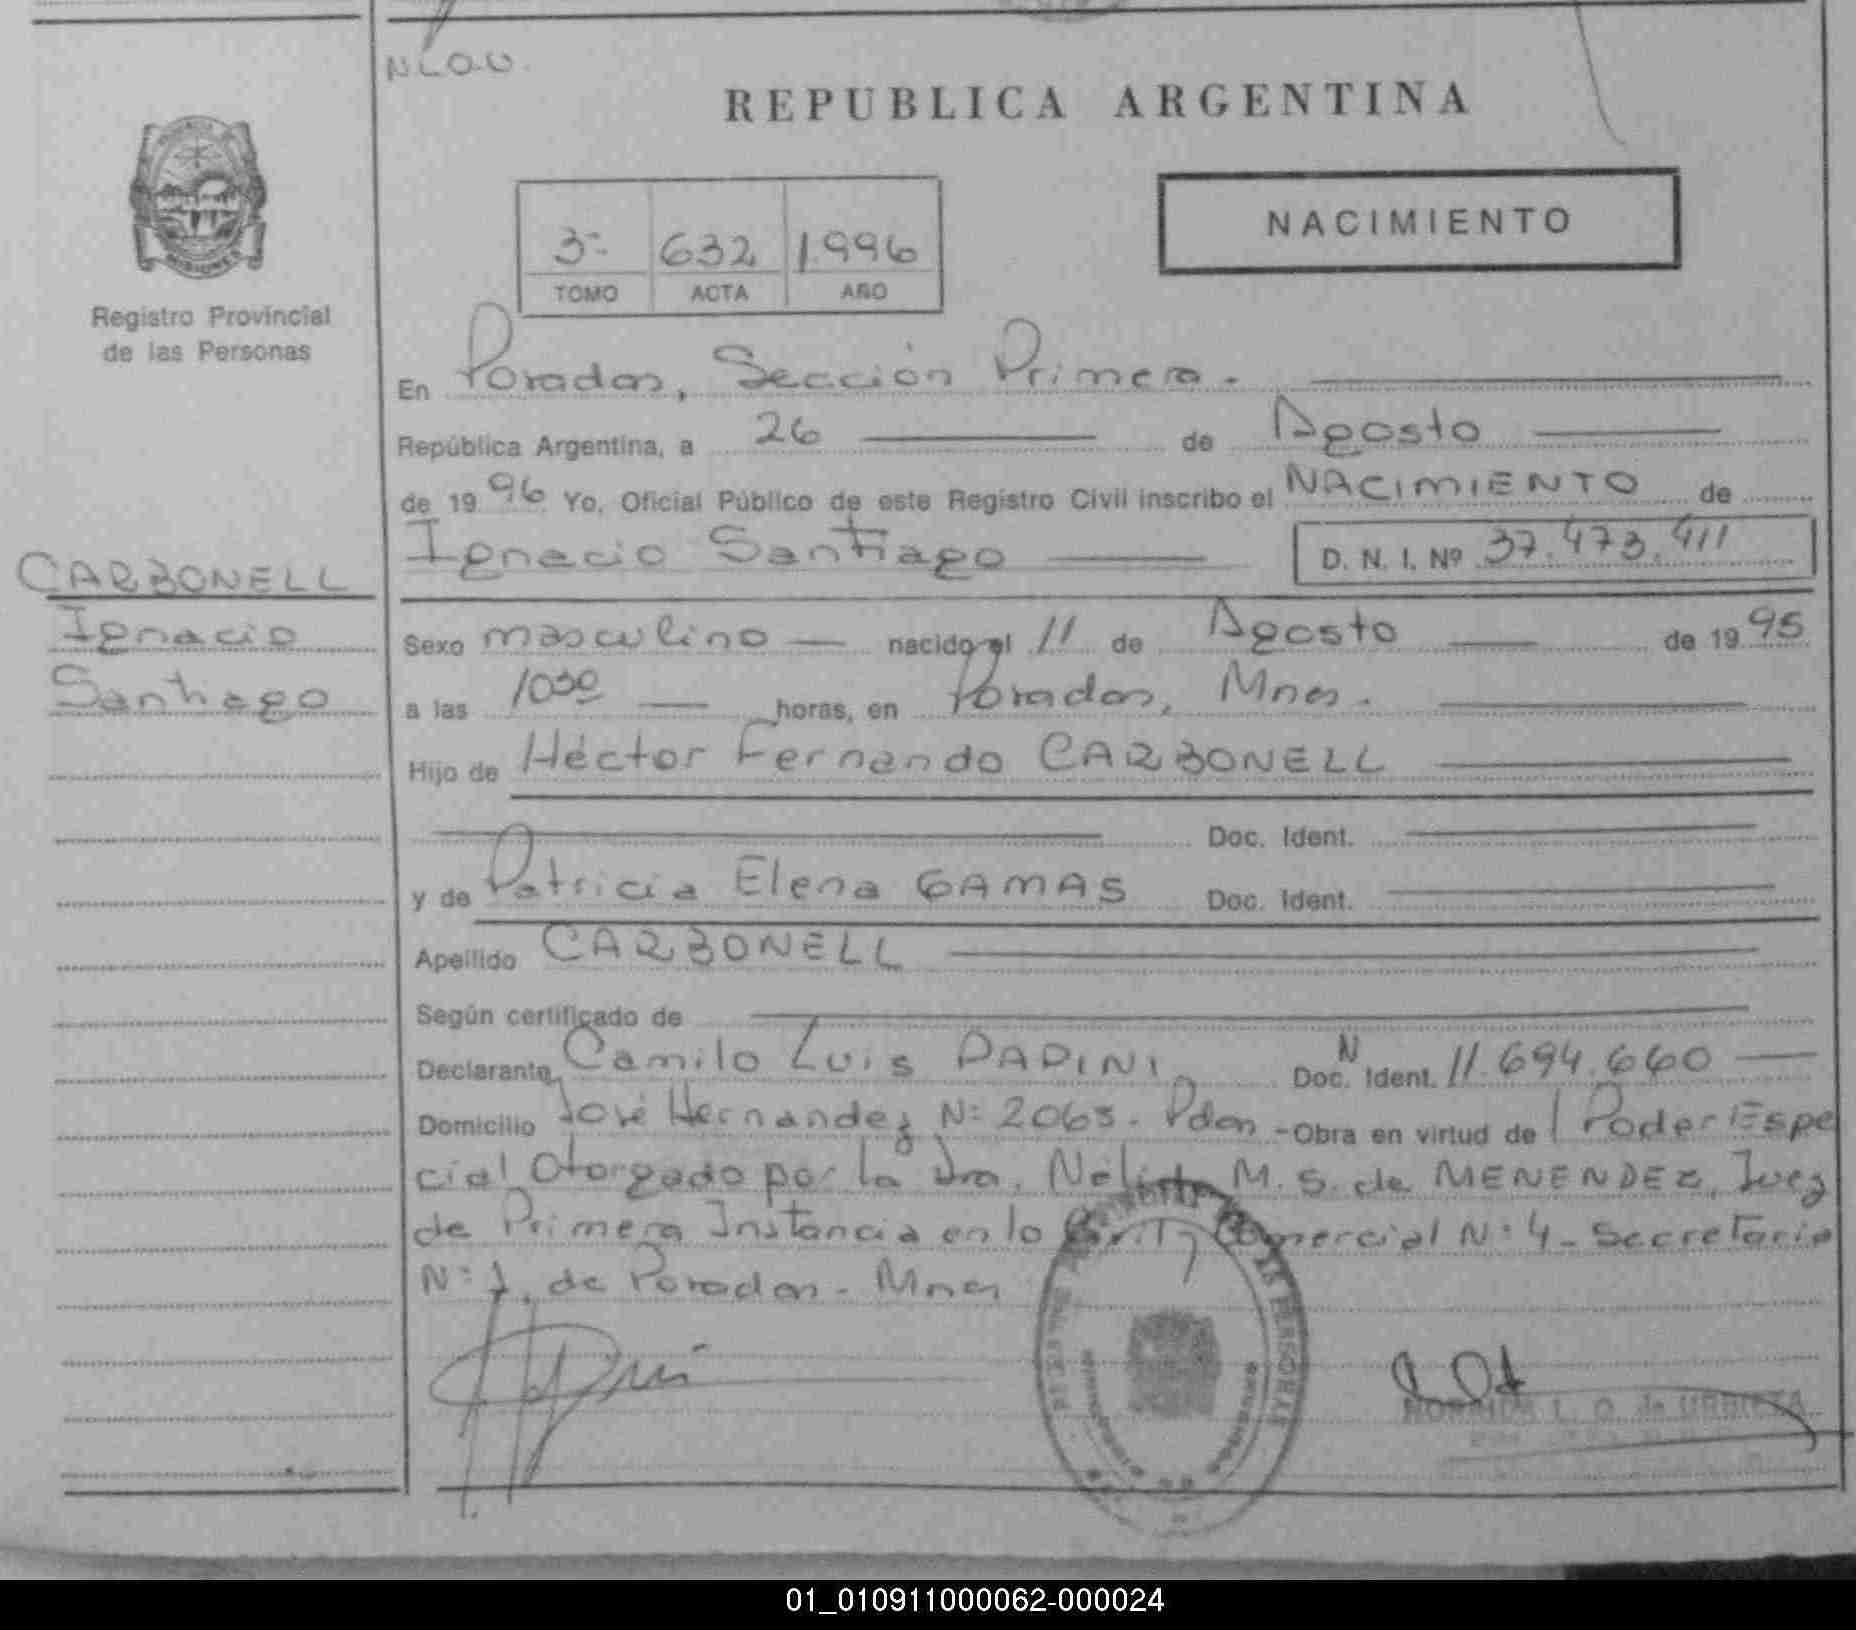 NLOU.
REPUBLICA ARGENTINA
NACIMIENTO
3º 632 1996
TOMO ACTA AÑO
MISIONES
Registro Provincial
de las Personas
En Posadas, Sección Primera.
República Argentina, a 26 de Agosto
de 1996 Yo, Oficial Público de este Registro Civil inscribo el NACIMIENTO de
Ignacio Santiago D. N. I. Nº 37.473.411
CARBONELL
Ignacio
Santiago
Sexo masculino nacido el 11 de Agosto de 1995
a las 1030 horas, en Posadas, Mnes.
Hijo de Héctor Fernando CARBONELL
Doc. Ident.
y de Patricia Elena GAMAS Doc. Ident.
Apellido CARBONELL
Según certificado de
Declarante Camilo Luis PAPINI Doc. N Ident. 11.694.660
Domicilio José Hernandez Nº 2065. Pdas -Obra en virtud de Poder Espe
cial Otorgado por la Dra. Nélida M. S. de MENENDEZ, Juez
de Primera Instancia en lo Civil y Comercial Nº 4 - Secretaria
Nº 1, de Posadas - Mnes
PERSONAS
L. O. de URBIETA
01_010911000062-000024